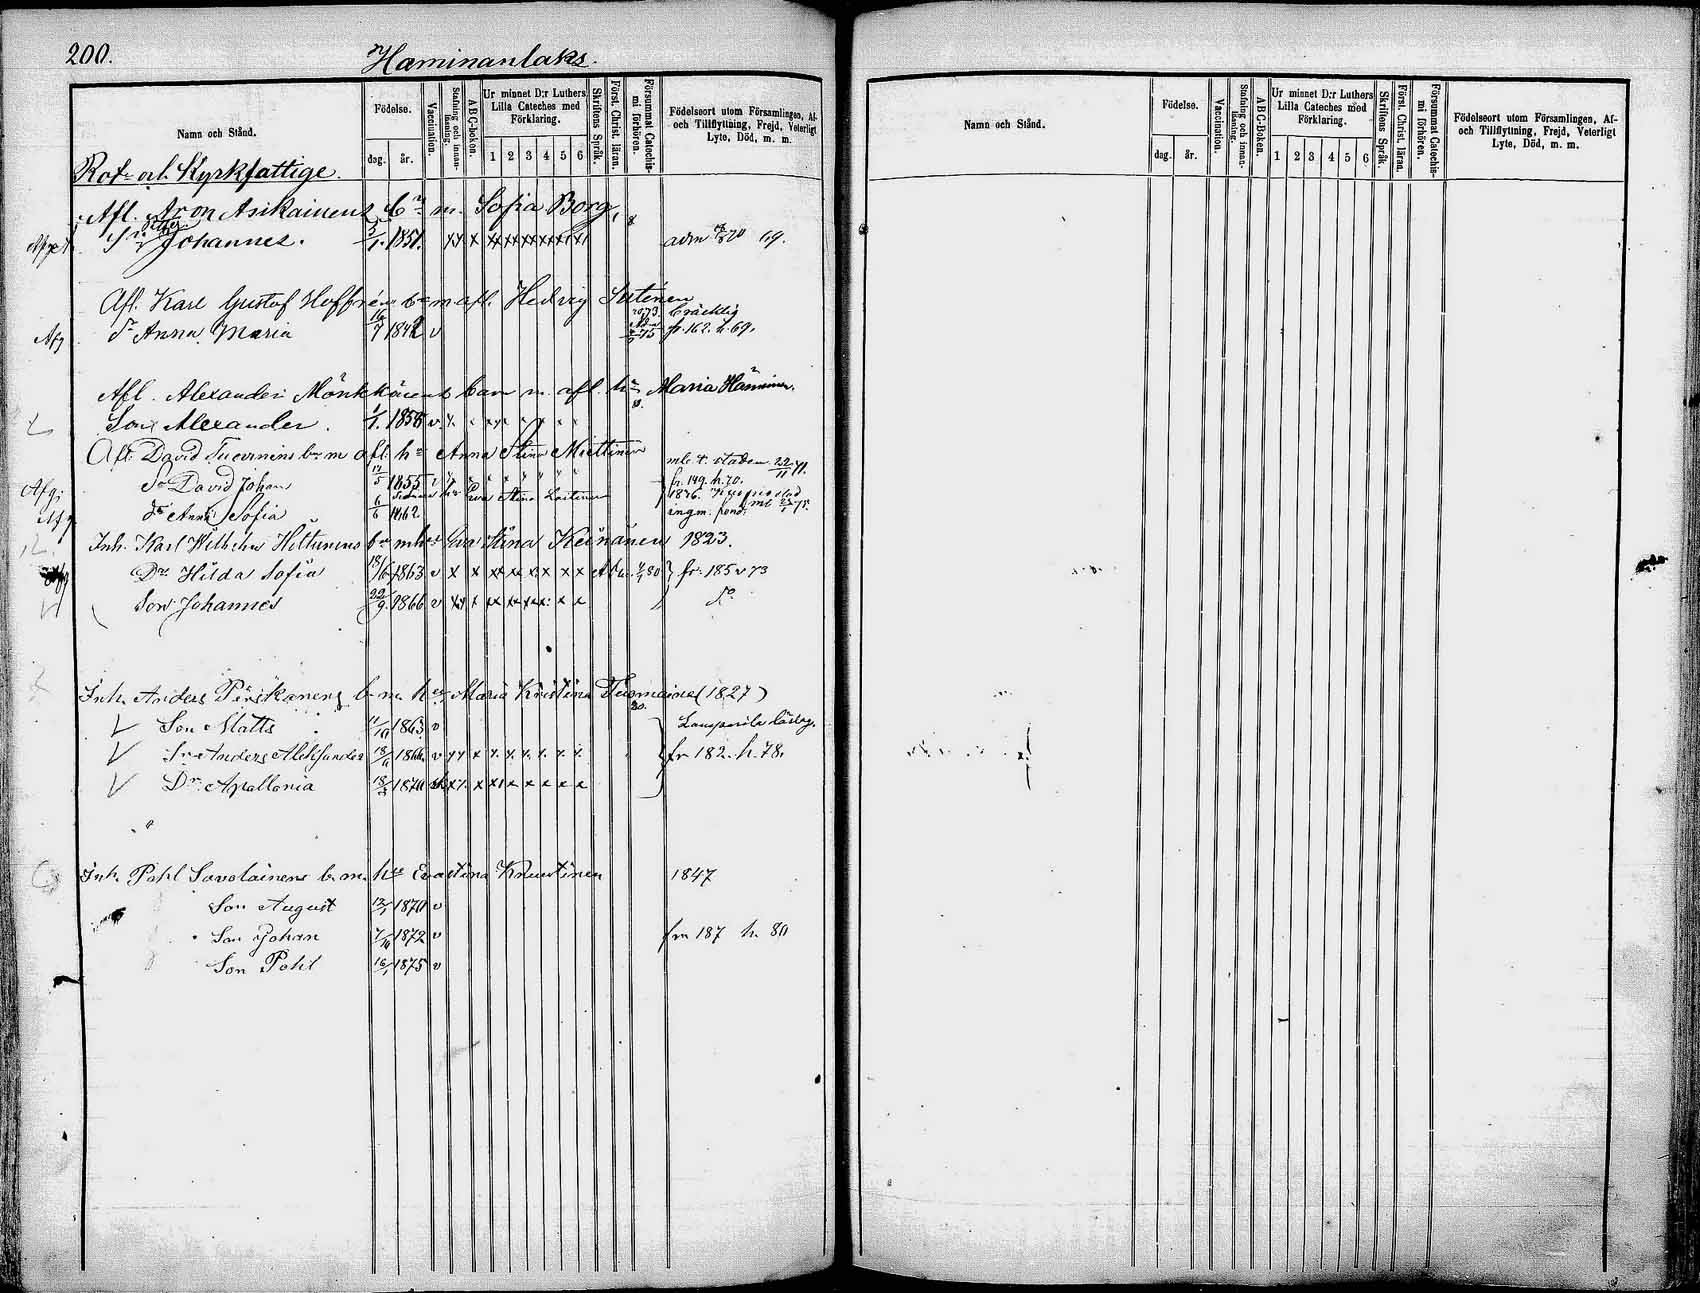 200.
Haminanlaks.
Namn och Stånd.
Födelse.
dag.
år.
Vaccination.
Stafning och innan-läsning.
A B C-boken.
Ur minnet D:r Luthers Lilla Cateches med Förklaring.
1 2 3 4 5 6
Skriftens Språk.
Först. Christ. läran.
Försummat Catechismi förhören.
Födelseort utom Församlingen, Af- och Tillflyttning, Frejd, Veterligt Lyte, Död, m. m.
Rote och Kyrkfattige.
Afl. Aron Asikainens bn m. Sofia Borg,
Johannes. 1851. x x x xx xx xx xx adm 69.
Afl. Karl Gustaf Hoffrén bn m afl. Hedvig Sutinen
Afg dr Anna Maria 16/7 1842 v bräcklig fr. 162. h. 69.
Afl. Alexander Mönkkönens barn m. afl. hu Maria Hänninen.
Son Alexander. 1/1. 1858 v.
Afl. David bn m afl. hu Anna Stina Miettinen
Afg. Sn David Johan 17/5 1855 v fr. 149. h. 70.
Afg dr Anna Sofia 6/6 1862
Inh. Karl Wilhelm Hiltunens bn m hu Eva Stina Keinänen 1823.
Dr Hilda Sofia 18/6 1863 v x x xx xx x x x x fr. 185 v 73
Son Johannes 22/9. 1866 v xx x xx xx xx x x x do
Inh. Anders Pirskanens b. m. hu Maria Kristina Tuomainen (1827)
Son Matts 11/10 1863 v
Sn Anders Aleksander 18/11 1866. v x x x x. x. x. x. x. x. fr 182. h. 78.
Dr. Apollonia 1870 x x. x x x x x x x
Inh. Pohl Savolainens b. m. hu Evastina Knuutinen 1847
Son August 1870 v
Son Johan 7/10 1872 v frn 187 h. 80
Son Pohl 16/1 1875 v
Namn och Stånd.
Födelse.
dag.
år.
Vaccination.
Stafning och innan-läsning.
A B C-Boken.
Ur minnet D:r Luthers Lilla Cateches med Förklaring.
1 2 3 4 5 6
Skriftens Språk.
Först. Christ. läran.
Försummat Catechismi förhören.
Födelseort utom Församlingen, Af- och Tillflyttning, Frejd, Veterligt Lyte, Död, m. m.